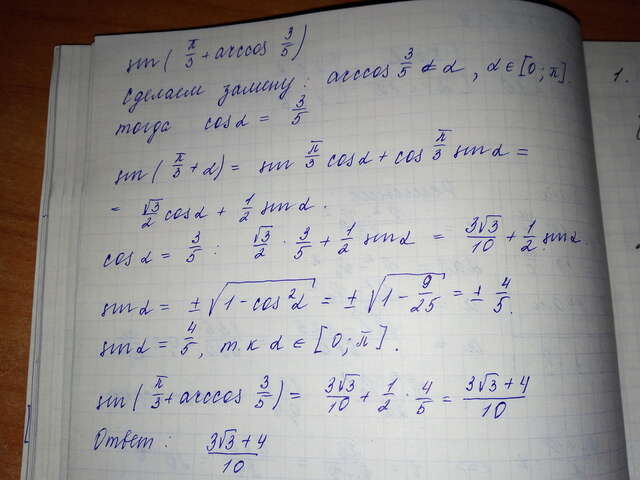 sin(π/3 + arccos 3/5)
Сделаем замену: arccos 3/5 = α, α ∈ [0; π].
тогда cos α = 3/5
sin(π/3 + α) = sin π/3 cos α + cos π/3 sin α =
= √3/2 cos α + 1/2 sin α.
cos α = 3/5 : √3/2 · 3/5 + 1/2 sin α = 3√3/10 + 1/2 sin α.
sin α = ± √(1 - cos² α) = ± √(1 - 9/25) = ± 4/5.
sin α = 4/5, т.к α ∈ [0; π].
sin(π/3 + arccos 3/5) = 3√3/10 + 1/2 · 4/5 = (3√3 + 4)/10
Ответ: (3√3 + 4)/10
1.